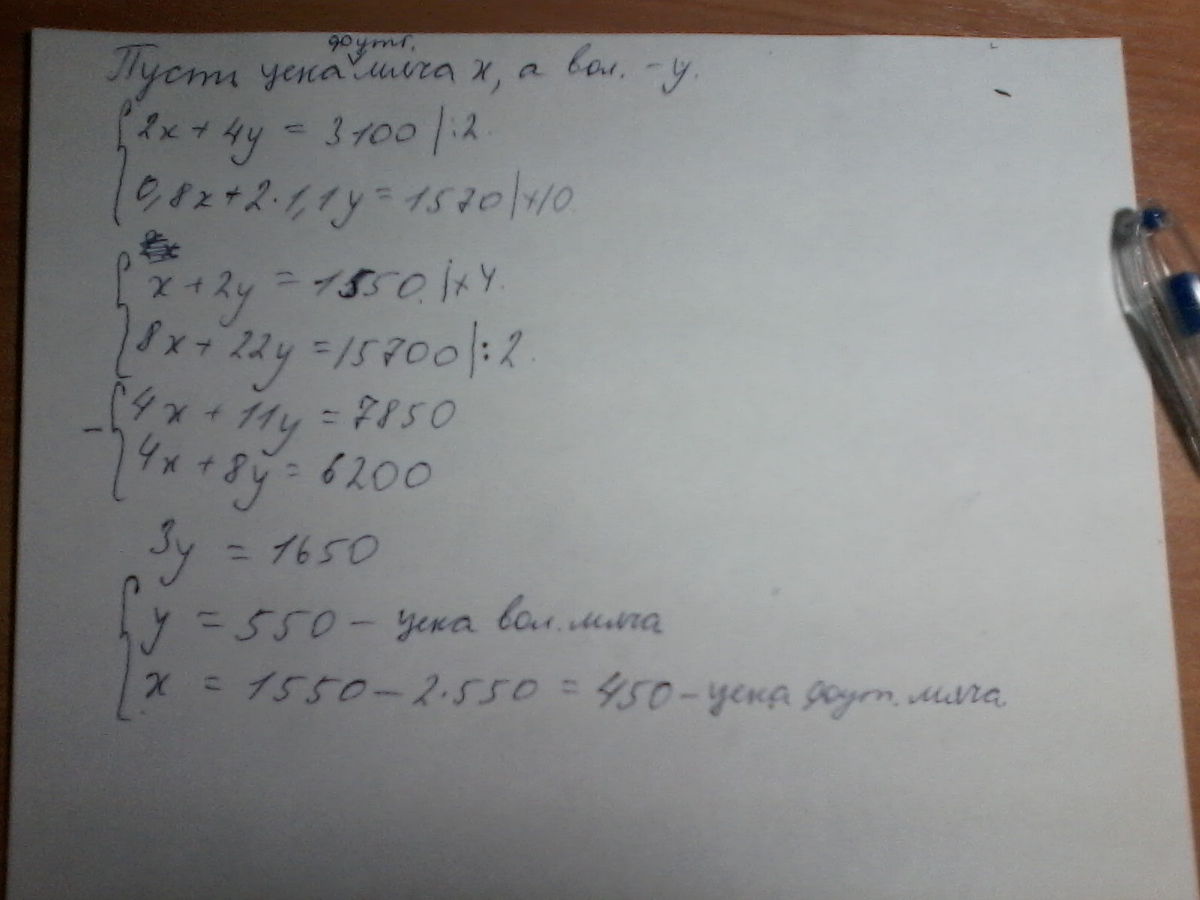 футб.
Пусть цена мяча x, а вол. - y.
2x + 4y = 3100 |:2
0,8x + 2·1,1y = 1570 |×10
x + 2y = 1550 |×4.
8x + 22y = 15700 |:2.
- 4x + 11y = 7850
4x + 8y = 6200
3y = 1650
y = 550 - цена вол. мяча
x = 1550 - 2·550 = 450 - цена фут. мяча